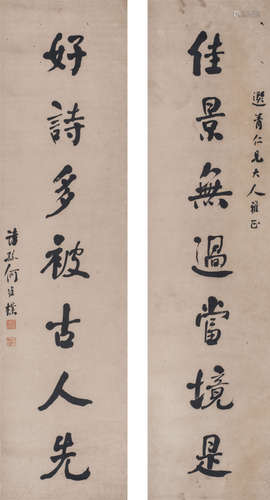 選青仁兄大人雅正
佳景無過當境是
好詩多被古人先
詩孫何維樸